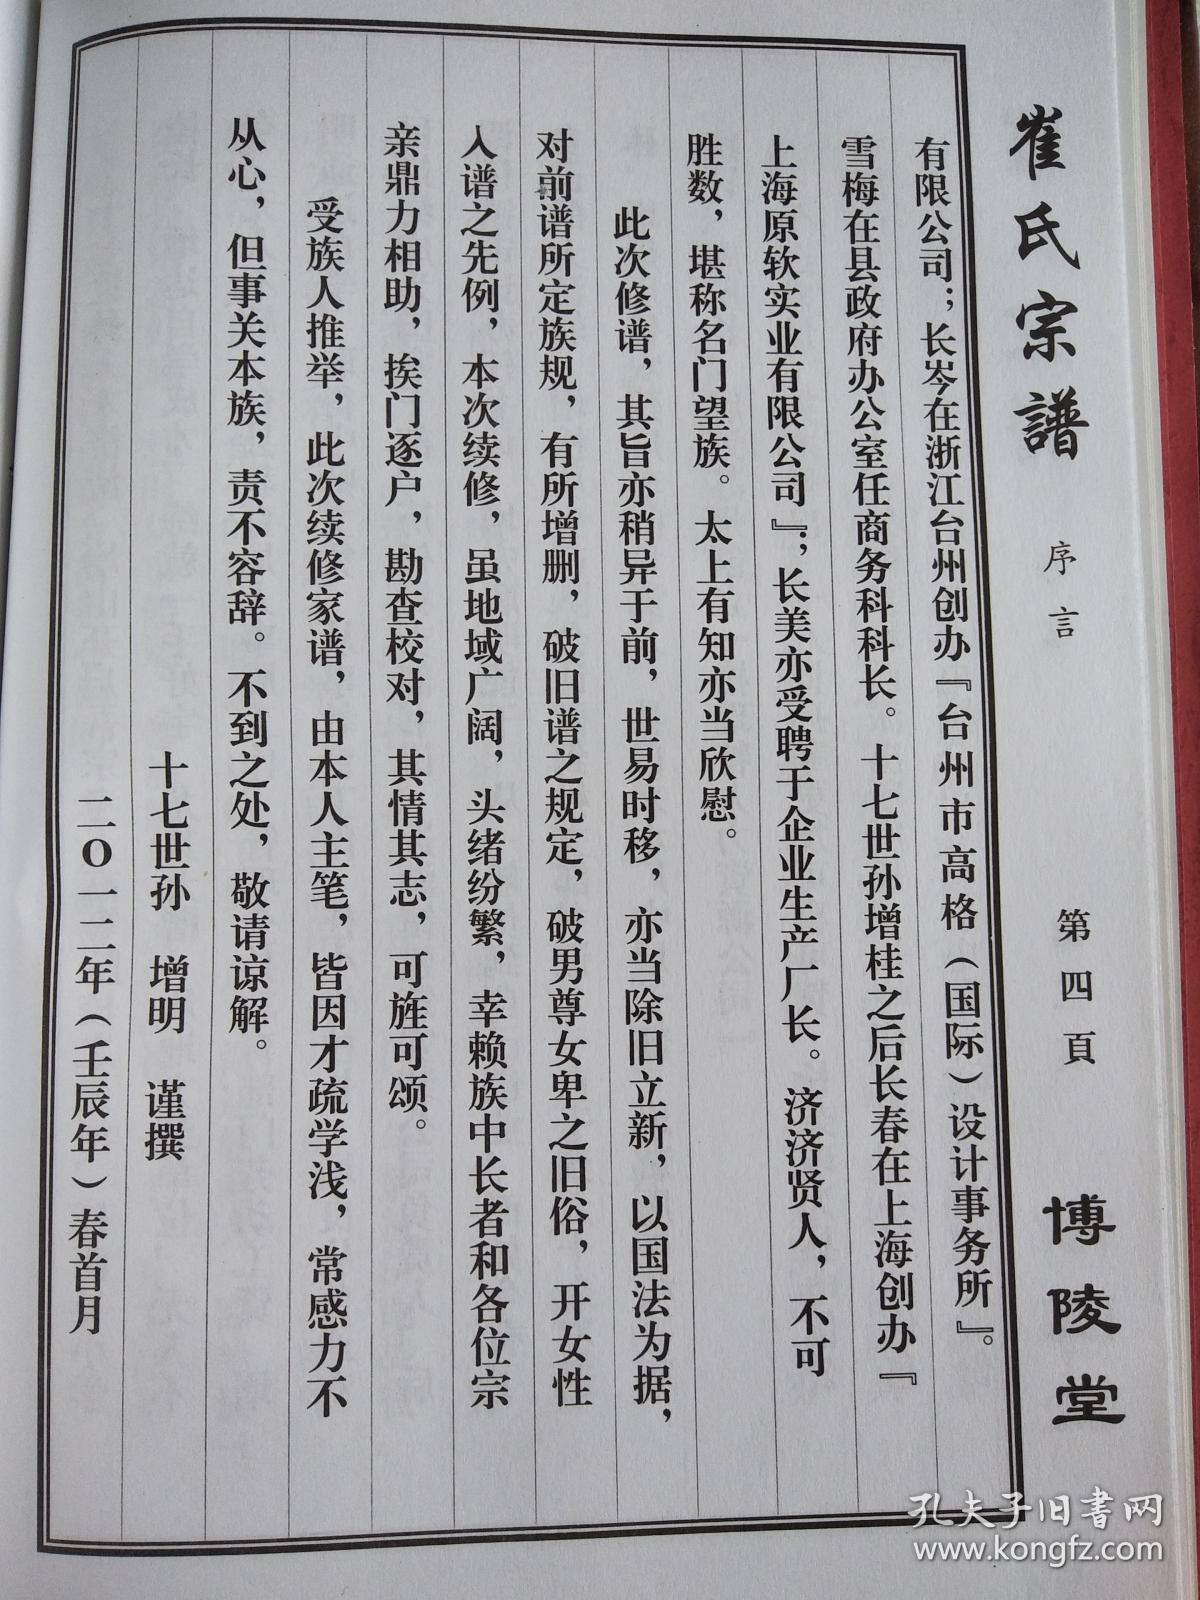 崔氏宗譜 序言 第四頁 博陵堂
有限公司；长岑在浙江台州创办『台州市高格（国际）设计事务所』。
雪梅在县政府办公室任商务科科长。十七世孙增桂之后长春在上海创办『
上海原软实业有限公司』；长美亦受聘于企业生产厂长。济济贤人，不可
胜数，堪称名门望族。太上有知亦当欣慰。
此次修谱，其旨亦稍异于前，世易时移，亦当除旧立新，以国法为据，
对前谱所定族规，有所增删，破旧谱之规定，破男尊女卑之旧俗，开女性
入谱之先例，本次续修，虽地域广阔，头绪纷繁，幸赖族中长者和各位宗
亲鼎力相助，挨门逐户，勘查校对，其情其志，可旌可颂。
受族人推举，此次续修家谱，由本人主笔，皆因才疏学浅，常感力不
从心，但事关本族，责不容辞。不到之处，敬请谅解。
十七世孙 增明 谨撰
二〇一二年（壬辰年）春首月
孔夫子旧书网
www.kongfz.com